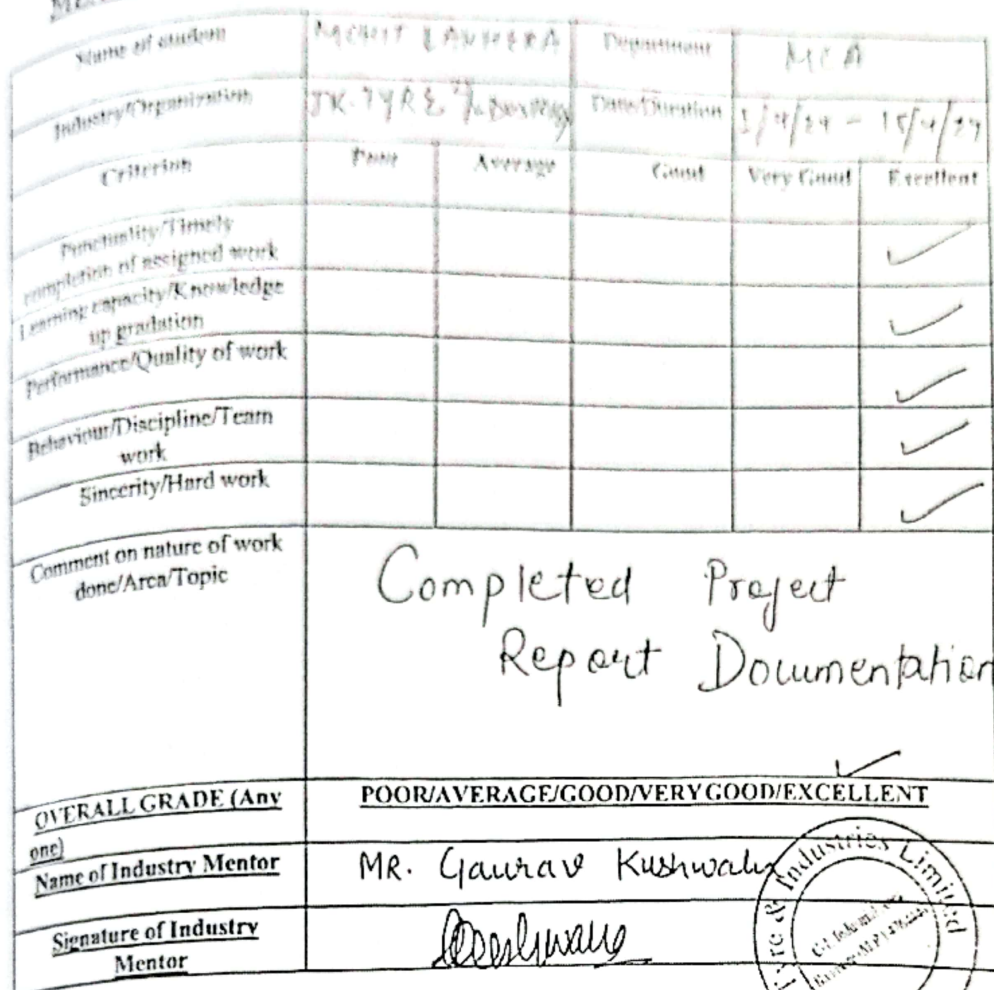 Name of student MOHIT Department MCA
Industry/Organization JK. TYRE Date/Duration 1/4/24 - 15/4/24
Criterion Poor Average Good Very Good Excellent
Punctuality/Timely
completion of assigned work
Learning capacity/Knowledge
up gradation
Performance/Quality of work
Behaviour/Discipline/Team
work
Sincerity/Hard work
Comment on nature of work
done/Area/Topic
Completed Project
Report Documentation
OVERALL GRADE (Any
one)
POOR/AVERAGE/GOOD/VERY GOOD/EXCELLENT
Name of Industry Mentor MR. Gaurav Kushwah
Signature of Industry
Mentor
Tyre & Industries Limited